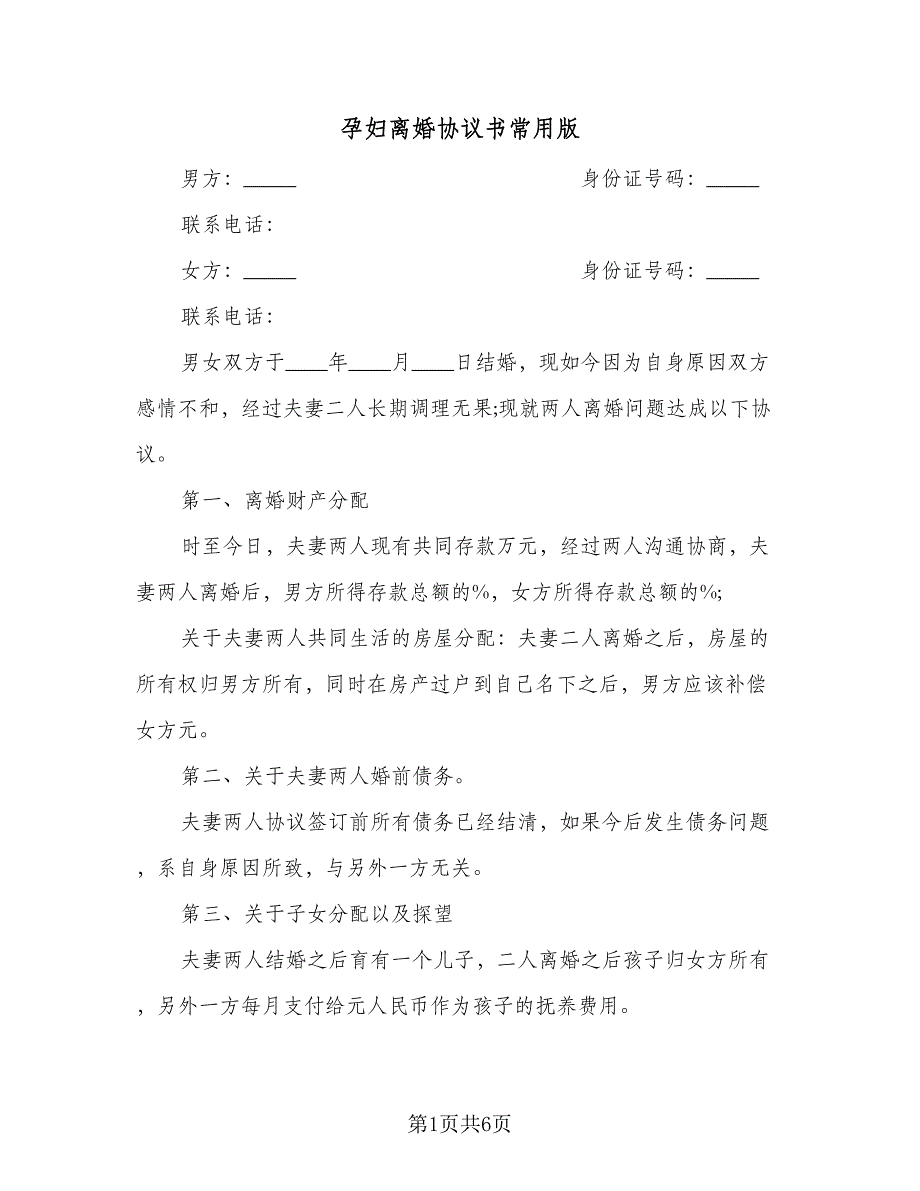 孕妇离婚协议书常用版
男方：_____ 身份证号码：_____
联系电话：
女方：_____ 身份证号码：_____
联系电话：
男女双方于____年____月____日结婚，现如今因为自身原因双方
感情不和，经过夫妻二人长期调理无果;现就两人离婚问题达成以下协
议。
第一、离婚财产分配
时至今日，夫妻两人现有共同存款万元，经过两人沟通协商，夫
妻两人离婚后，男方所得存款总额的%，女方所得存款总额的%;
关于夫妻两人共同生活的房屋分配：夫妻二人离婚之后，房屋的
所有权归男方所有，同时在房产过户到自己名下之后，男方应该补偿
女方元。
第二、关于夫妻两人婚前债务。
夫妻两人协议签订前所有债务已经结清，如果今后发生债务问题
，系自身原因所致，与另外一方无关。
第三、关于子女分配以及探望
夫妻两人结婚之后育有一个儿子，二人离婚之后孩子归女方所有
，另外一方每月支付给元人民币作为孩子的抚养费用。
第1页共6页